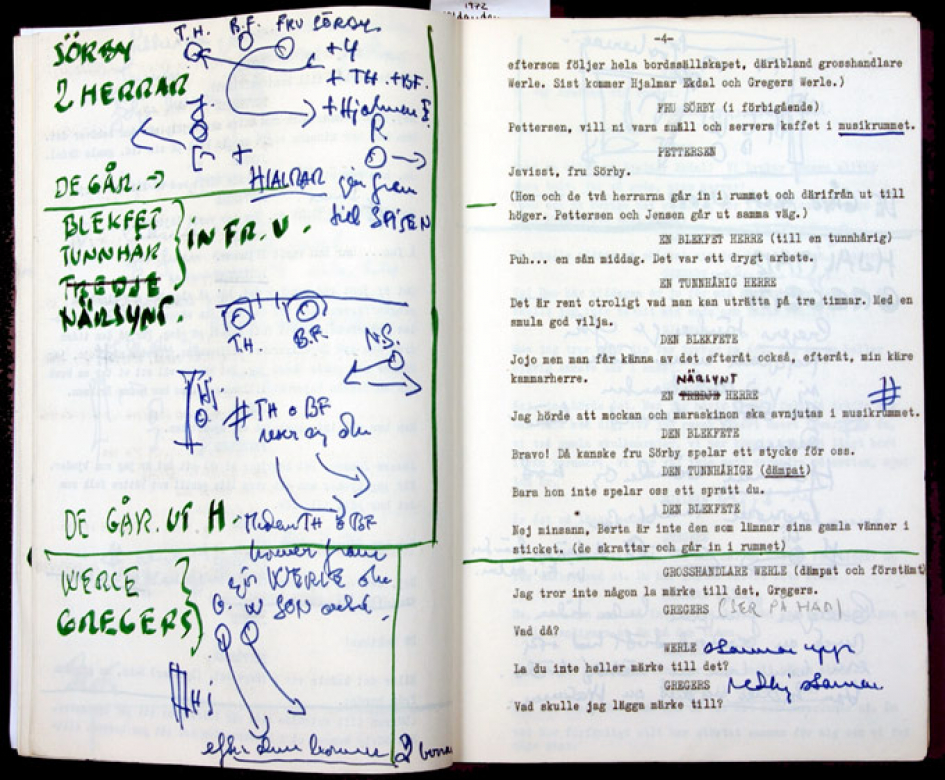 1972
SÖRBY
2 HERRAR
T.H. B.F. FRU SÖRBY
+4
+ TH + BF.
+ Hjalmar E
R
DE GÅR. →
HJALMAR går fram
till SPISEN
BLEKFET
TUNNHÅR
TREDJE
NÄRSYNT.
IN FR. V.
T.H. B.F.
N.S.
Hj
# TH o BF
DE GÅR. UT H.
Medan TH o BF
WERLE
GREGERS
WERLE
G.
Hj
efter dem kommer 2
-4-
eftersom följer hela bordssällskapet, däribland grosshandlare
Werle. Sist kommer Hjalmar Ekdal och Gregers Werle.)
FRU SÖRBY (i förbigående)
Pettersen, vill ni vara snäll och servera kaffet i musikrummet.
PETTERSEN
Javisst, fru Sörby.
(Hon och de två herrarna går in i rummet och därifrån ut till
höger. Pettersen och Jensen går ut samma väg.)
EN BLEKFET HERRE (till en tunnhårig)
Puh... en sån middag. Det var ett drygt arbete.
EN TUNNHÅRIG HERRE
Det är rent otroligt vad man kan uträtta på tre timmar. Med en
smula god vilja.
DEN BLEKFETE
Jojo men man får känna av det efteråt också, efteråt, min käre
kammarherre.
NÄRSYNT
EN TREDJE HERRE
#
Jag hörde att mockan och maraskinon ska avnjutas i musikrummet.
DEN BLEKFETE
Bravo! Då kanske fru Sörby spelar ett stycke för oss.
DEN TUNNHÅRIGE (dämpat)
Bara hon inte spelar oss ett spratt du.
DEN BLEKFETE
Nej minsann, Berta är inte den som lämnar sina gamla vänner i
sticket. (de skrattar och går in i rummet)
GROSSHANDLARE WERLE (dämpat och förstämt
Jag tror inte någon la märke till det, Gregers.
GREGERS (SER PÅ HAN)
Vad då?
WERLE stannar upp
La du inte heller märke till det?
GREGERS stannar
Vad skulle jag lägga märke till?